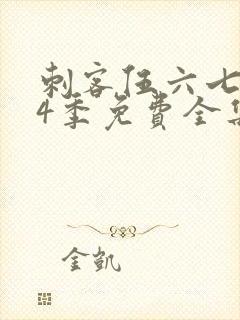 刺客伍六七
4季免费全集
金凯